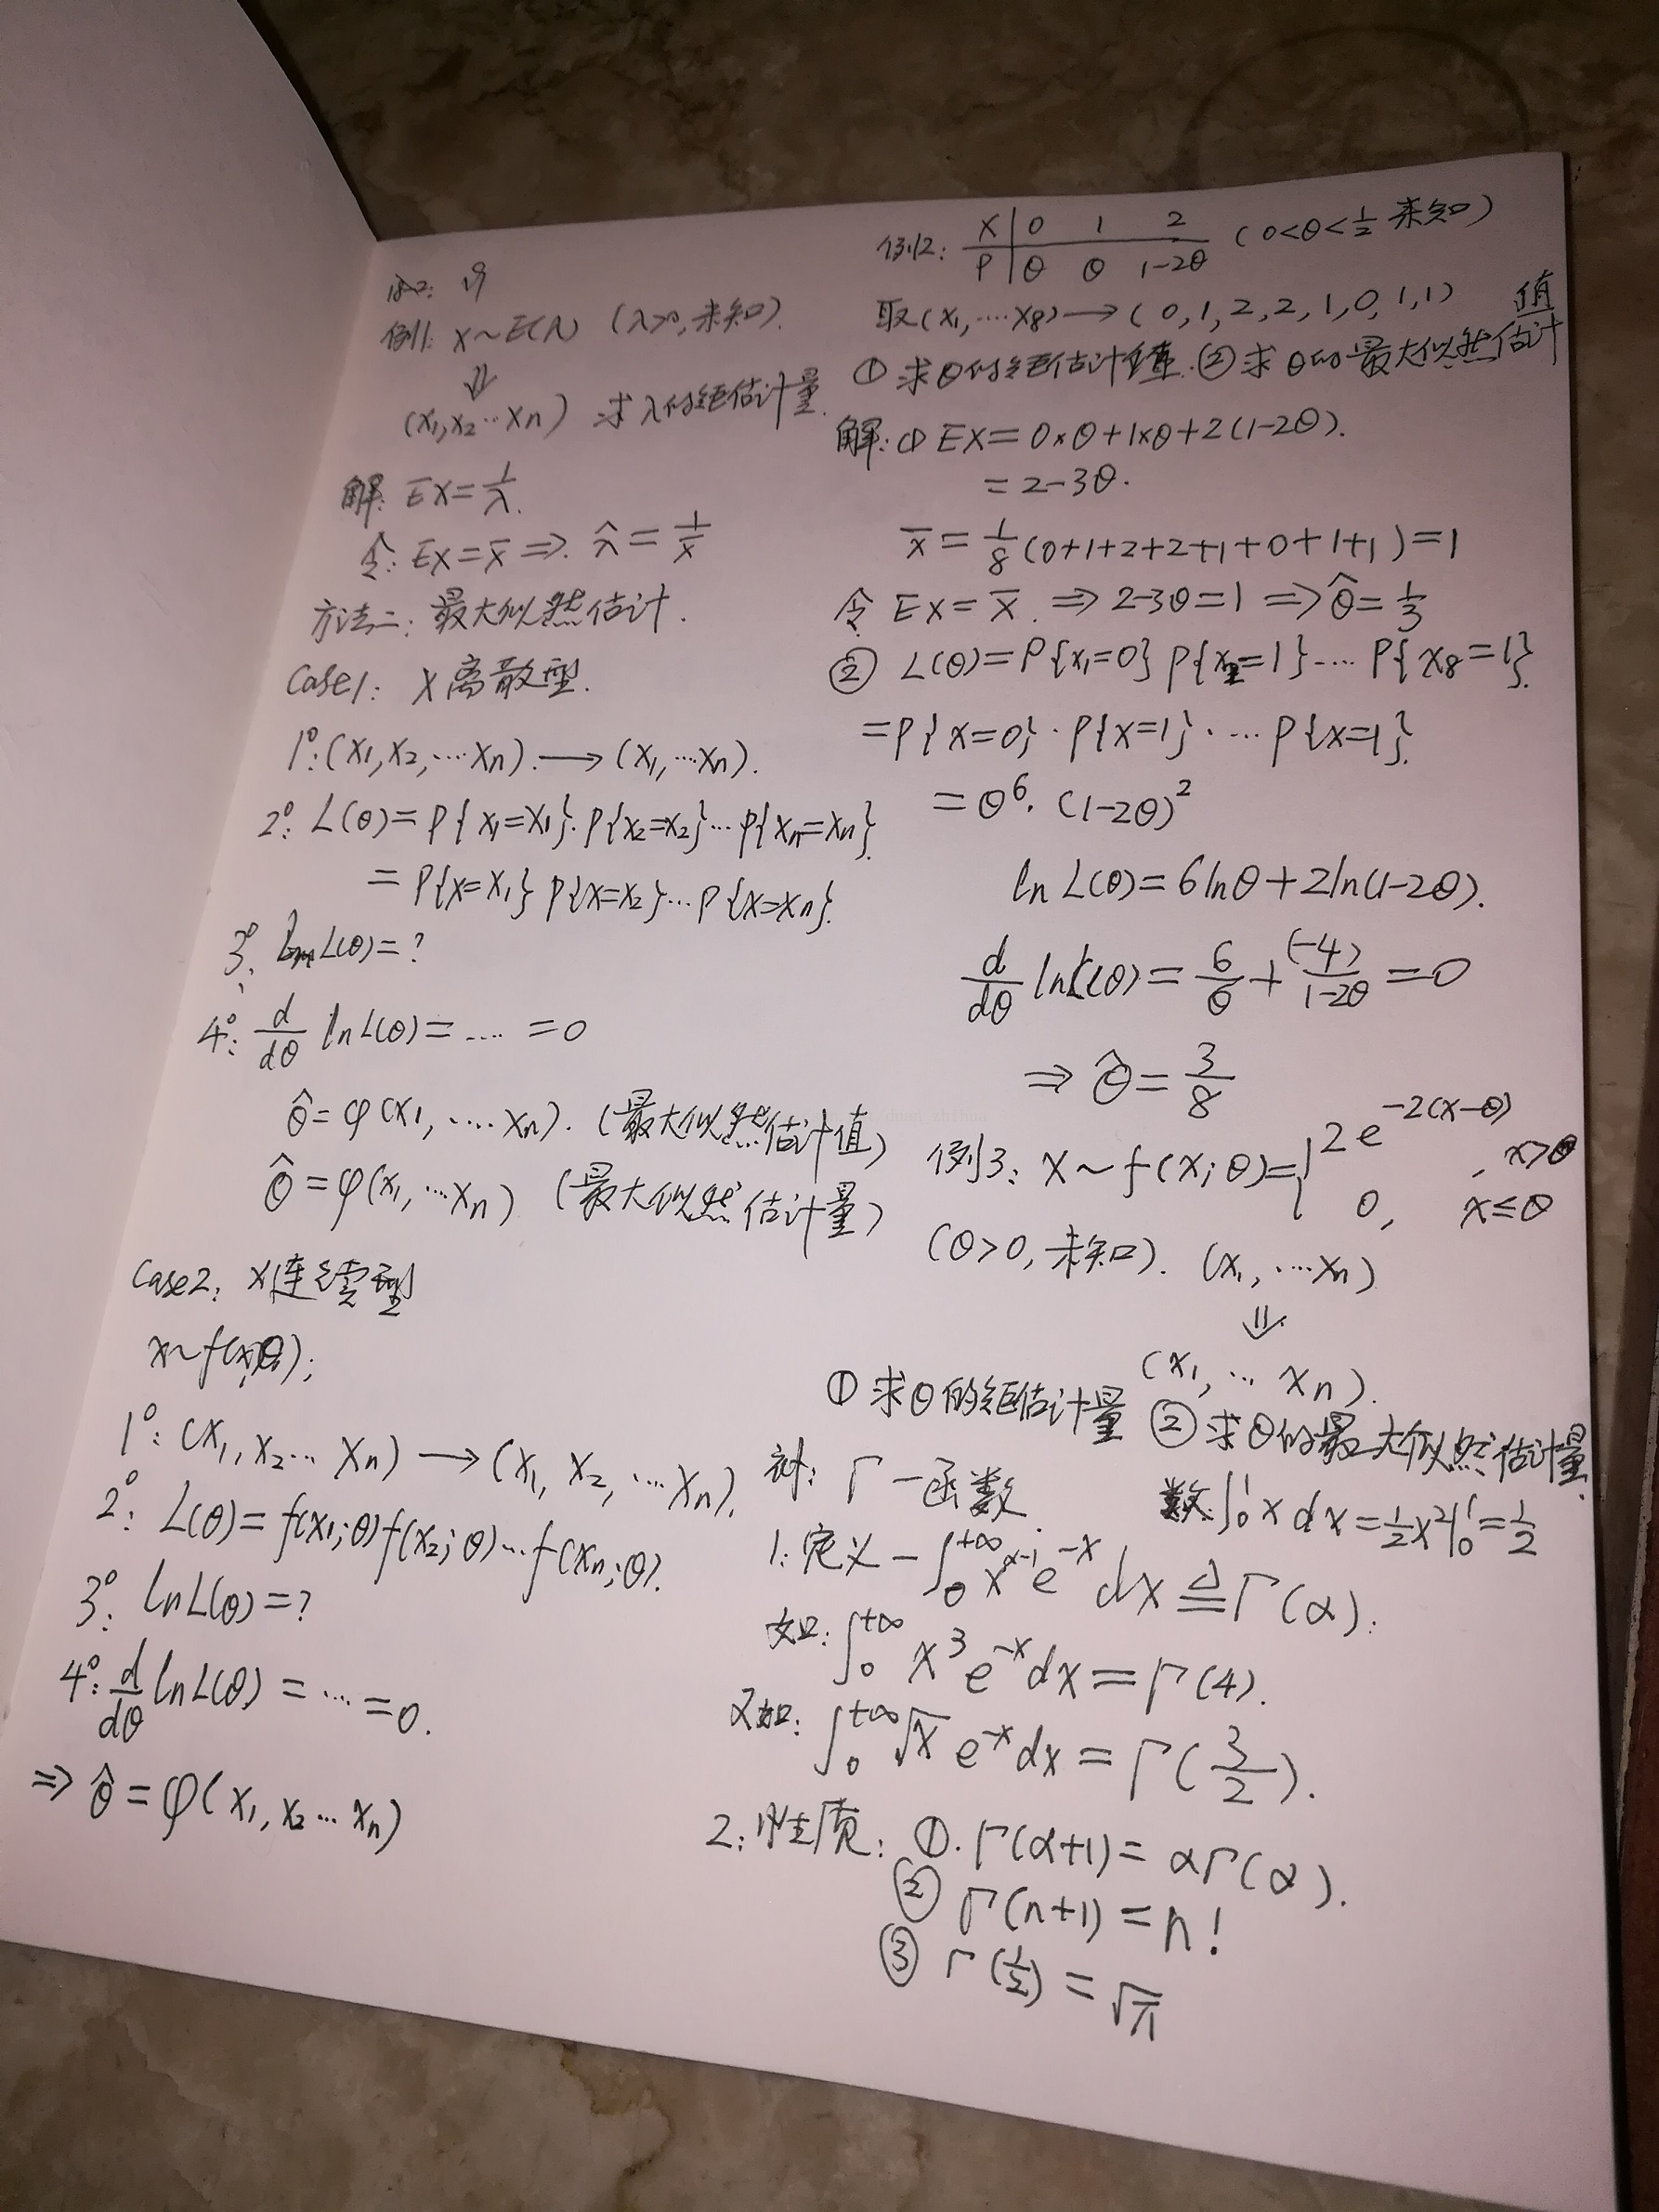 例1: X~E(λ) (λ>0, 未知).
⇓
(X₁,X₂…Xn) 求λ的矩估计量.
解: EX=1/λ.
令: EX=x̄ ⇒. λ̂=1/x̄
方法二: 最大似然估计.
Case1: X离散型.
1°: (X₁,X₂,…Xn). → (x₁,…xn).
2°: L(θ)=P{X₁=x₁}.P{X₂=x₂}…P{Xn=xn}.
=P{X=x₁} P{X=x₂}…P{X=xn}.
3°: ln L(θ)=?
4°: d/dθ ln L(θ)=…. =0
θ̂=φ(x₁,….xn). (最大似然估计值)
θ̂=φ(x₁,…xn) (最大似然估计量)
Case2: X连续型
x~f(x;θ);
1°: (X₁,X₂…Xn) → (x₁,x₂,…xn).
2°: L(θ)=f(x₁;θ)f(x₂;θ)…f(xn;θ).
3°: lnL(θ)=?
4°: d/dθ lnL(θ)=…=0.
⇒ θ̂=φ(x₁,x₂…xn)
例2: X | 0 1 2 (0<θ<1/2 未知)
P | θ θ 1-2θ
取(x₁,…x₈)→(0,1,2,2,1,0,1,1)
①求θ的矩估计值.②求θ的最大似然估计值
解:① EX=0×θ+1×θ+2(1-2θ).
=2-3θ.
x̄=1/8(0+1+2+2+1+0+1+1)=1
令 EX=x̄. ⇒2-3θ=1⇒θ̂=1/3
② L(θ)=P{x₁=0}P{x₂=1}….P{x₈=1}.
=P{x=0}·P{x=1}·…P{x=1}.
=θ⁶·(1-2θ)²
ln L(θ)=6lnθ+2ln(1-2θ).
d/dθ lnL(θ)=6/θ+(-4)/(1-2θ)=0
⇒ θ̂=3/8
例3: X~f(x;θ)={2e^{-2(x-θ)}, x>θ
0, x≤θ
(θ>0,未知). (X₁,…Xn)
⇓
(x₁,…xn).
①求θ的矩估计量 ②求θ的最大似然估计量.
补: Γ-函数
数:∫₀¹xdx=1/2x²|₀¹=1/2
1: 定义-∫₀^{+∞}x^{α-1}e^{-x}dx≜Γ(α).
如: ∫₀^{+∞}x³e^{-x}dx=Γ(4).
又如: ∫₀^{+∞}√x e^{-x}dx=Γ(3/2).
2: 性质: ①.Γ(α+1)=αΓ(α).
② Γ(n+1)=n!
③ Γ(1/2)=√π